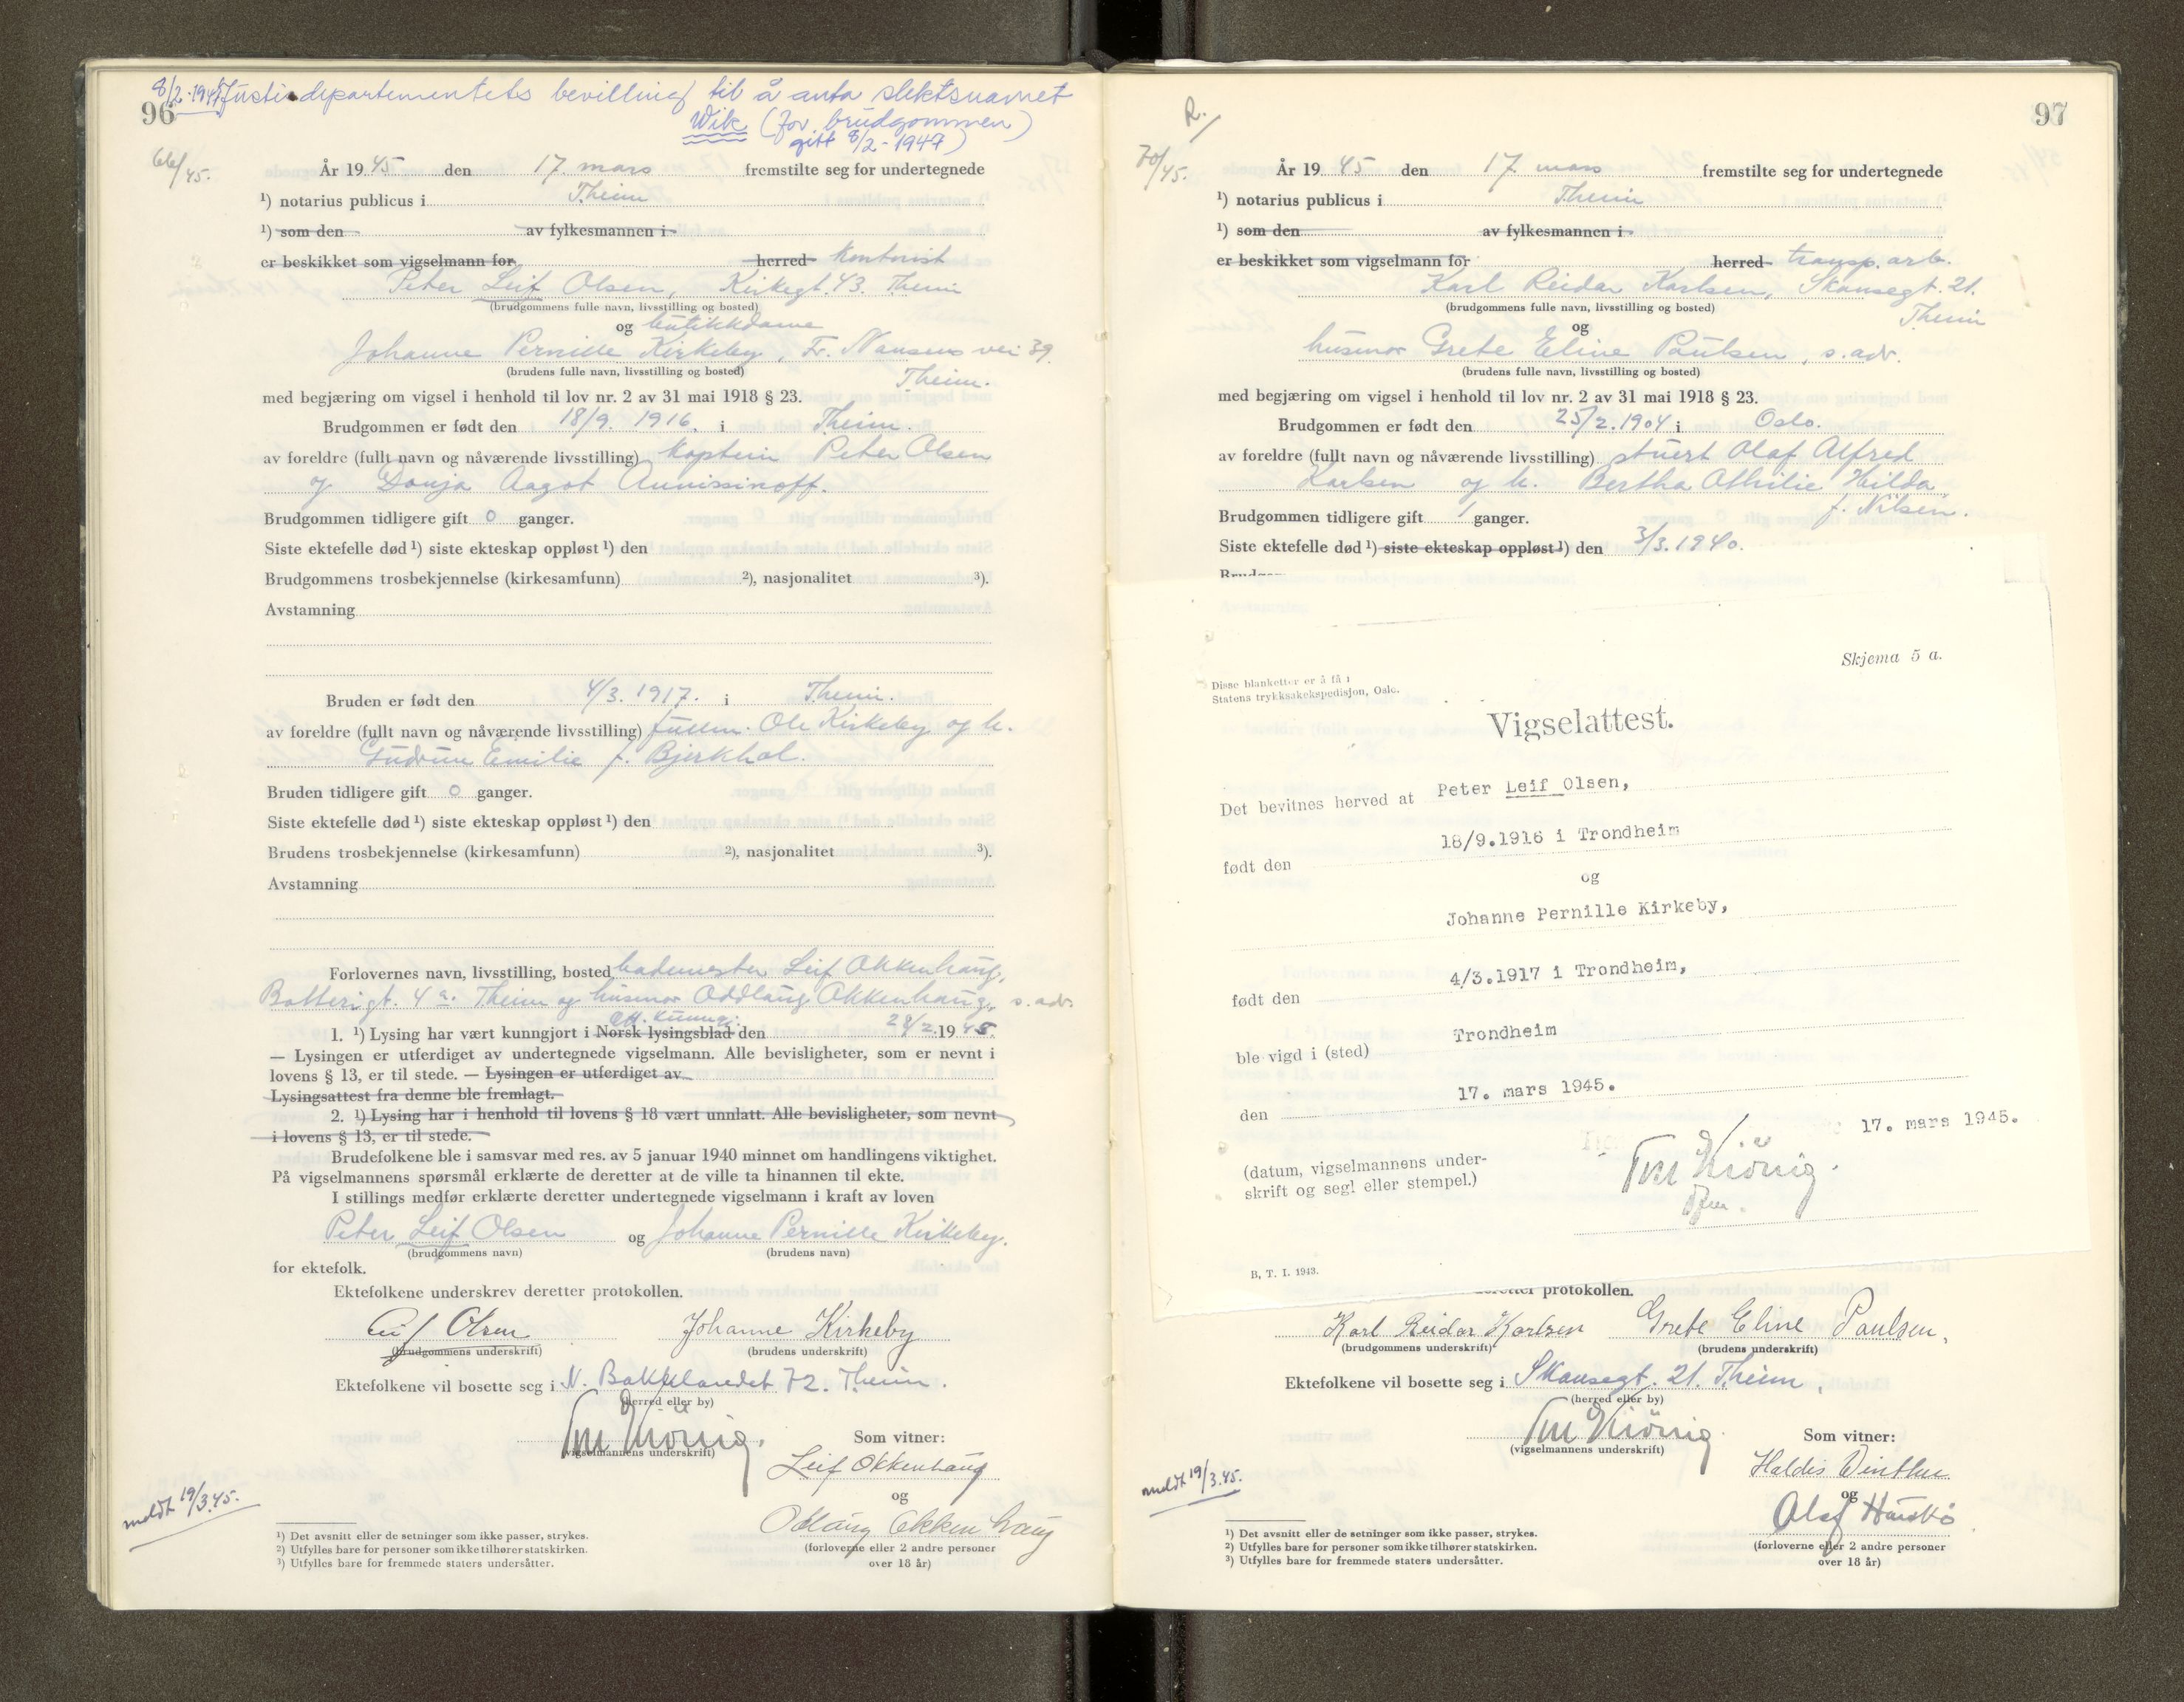 8/2-1947 Justisdepartementets bevilling til å anta slektsnavnet
Wik (for brudgommen)
gitt 8/2-1947)
96
66/45.
År 1945 den 17. mars fremstilte seg for undertegnede
¹) notarius publicus i Theim
¹) som den av fylkesmannen i
er beskikket som vigselmann for herred kontorist
Peter Leif Olsen, Kirkegt. 43. Theim
(brudgommens fulle navn, livsstilling og bosted)
og butikkdame
Johanne Pernille Kirkeby, Fr. Nansens vei 39.
(brudens fulle navn, livsstilling og bosted)
Theim.
med begjæring om vigsel i henhold til lov nr. 2 av 31 mai 1918 § 23.
Brudgommen er født den 18/9. 1916. i Theim.
av foreldre (fullt navn og nåværende livsstilling) kaptein Peter Olsen
og Donja Aagot Annissinoff.
Brudgommen tidligere gift 0 ganger.
Siste ektefelle død ¹) siste ekteskap oppløst ¹) den
Brudgommens trosbekjennelse (kirkesamfunn) ²), nasjonalitet ³).
Avstamning
Bruden er født den 4/3. 1917. i Theim.
av foreldre (fullt navn og nåværende livsstilling) fullm. Ole Kirkeby og h.
Gudrun Emilie f. Bjerkhol.
Bruden tidligere gift 0 ganger.
Siste ektefelle død ¹) siste ekteskap oppløst ¹) den
Brudens trosbekjennelse (kirkesamfunn) ²), nasjonalitet ³).
Avstamning
Forlovernes navn, livsstilling, bosted bademester Leif Okkenhaug,
Batterigt. 4 a. Theim og husmor Oddlaug Okkenhaug, s. adr.
1. ¹) Lysing har vært kunngjort i Norsk lysingsblad den 28/2. 1945.
— Lysingen er utferdiget av undertegnede vigselmann. Alle bevisligheter, som er nevnt i
lovens § 13, er til stede. — Lysingen er utferdiget av
Lysingsattest fra denne ble fremlagt.
2. ¹) Lysing har i henhold til lovens § 18 vært unnlatt. Alle bevisligheter, som nevnt
i lovens § 13, er til stede.
Brudefolkene ble i samsvar med res. av 5 januar 1940 minnet om handlingens viktighet.
På vigselmannens spørsmål erklærte de deretter at de ville ta hinannen til ekte.
I stillings medfør erklærte deretter undertegnede vigselmann i kraft av loven
Peter Leif Olsen og Johanne Pernille Kirkeby.
(brudgommens navn) (brudens navn)
for ektefolk.
Ektefolkene underskrev deretter protokollen.
Leif Olsen Johanne Kirkeby
(brudgommens underskrift) (brudens underskrift)
Ektefolkene vil bosette seg i N. Bakklandet 72. Theim.
(herred eller by)
(vigselmannens underskrift)
Som vitner:
Leif Okkenhaug
og
Oddlaug Okkenhaug
(forloverne eller 2 andre personer
over 18 år)
meldt 19/3.45.
¹) Det avsnitt eller de setninger som ikke passer, strykes.
²) Utfylles bare for personer som ikke tilhører statskirken.
³) Utfylles bare for fremmede staters undersåtter.
R.
97
70/45.
År 1945 den 17. mars fremstilte seg for undertegnede
¹) notarius publicus i Theim
¹) som den av fylkesmannen i
er beskikket som vigselmann for herred transp. arb.
Karl Reidar Karlsen, Skansegt. 21.
(brudgommens fulle navn, livsstilling og bosted)
Theim
og
husmor Grete Eline Paulsen, s. adr.
(brudens fulle navn, livsstilling og bosted)
med begjæring om vigsel i henhold til lov nr. 2 av 31 mai 1918 § 23.
Brudgommen er født den 25/2. 1904 i Oslo.
av foreldre (fullt navn og nåværende livsstilling) stuert Olaf Alfred
Karlsen og h. Bertha Athilie Hilda
f. Nilsen.
Brudgommen tidligere gift 1 ganger.
Siste ektefelle død ¹) siste ekteskap oppløst ¹) den 3/3. 1940.
Skjema 5 a.
Disse blanketter er å få i
Statens trykksakekspedisjon, Oslo.
Vigselattest.
Det bevitnes herved at Peter Leif Olsen,
født den 18/9.1916 i Trondheim
og
Johanne Pernille Kirkeby,
født den 4/3.1917 i Trondheim,
ble vigd i (sted) Trondheim
den 17. mars 1945.
17. mars 1945.
(datum, vigselmannens under-
skrift og segl eller stempel.)
B. T. I. 1943.
deretter protokollen.
Karl Reidar Karlsen Grete Eline Paulsen,
(brudgommens underskrift) (brudens underskrift)
Ektefolkene vil bosette seg i Skansegt. 21. Theim,
(herred eller by)
(vigselmannens underskrift)
Som vitner:
Haldis Winther
og
Olaf
(forloverne eller 2 andre personer
over 18 år)
meldt 19/3.45.
¹) Det avsnitt eller de setninger som ikke passer, strykes.
²) Utfylles bare for personer som ikke tilhører statskirken.
³) Utfylles bare for fremmede staters undersåtter.